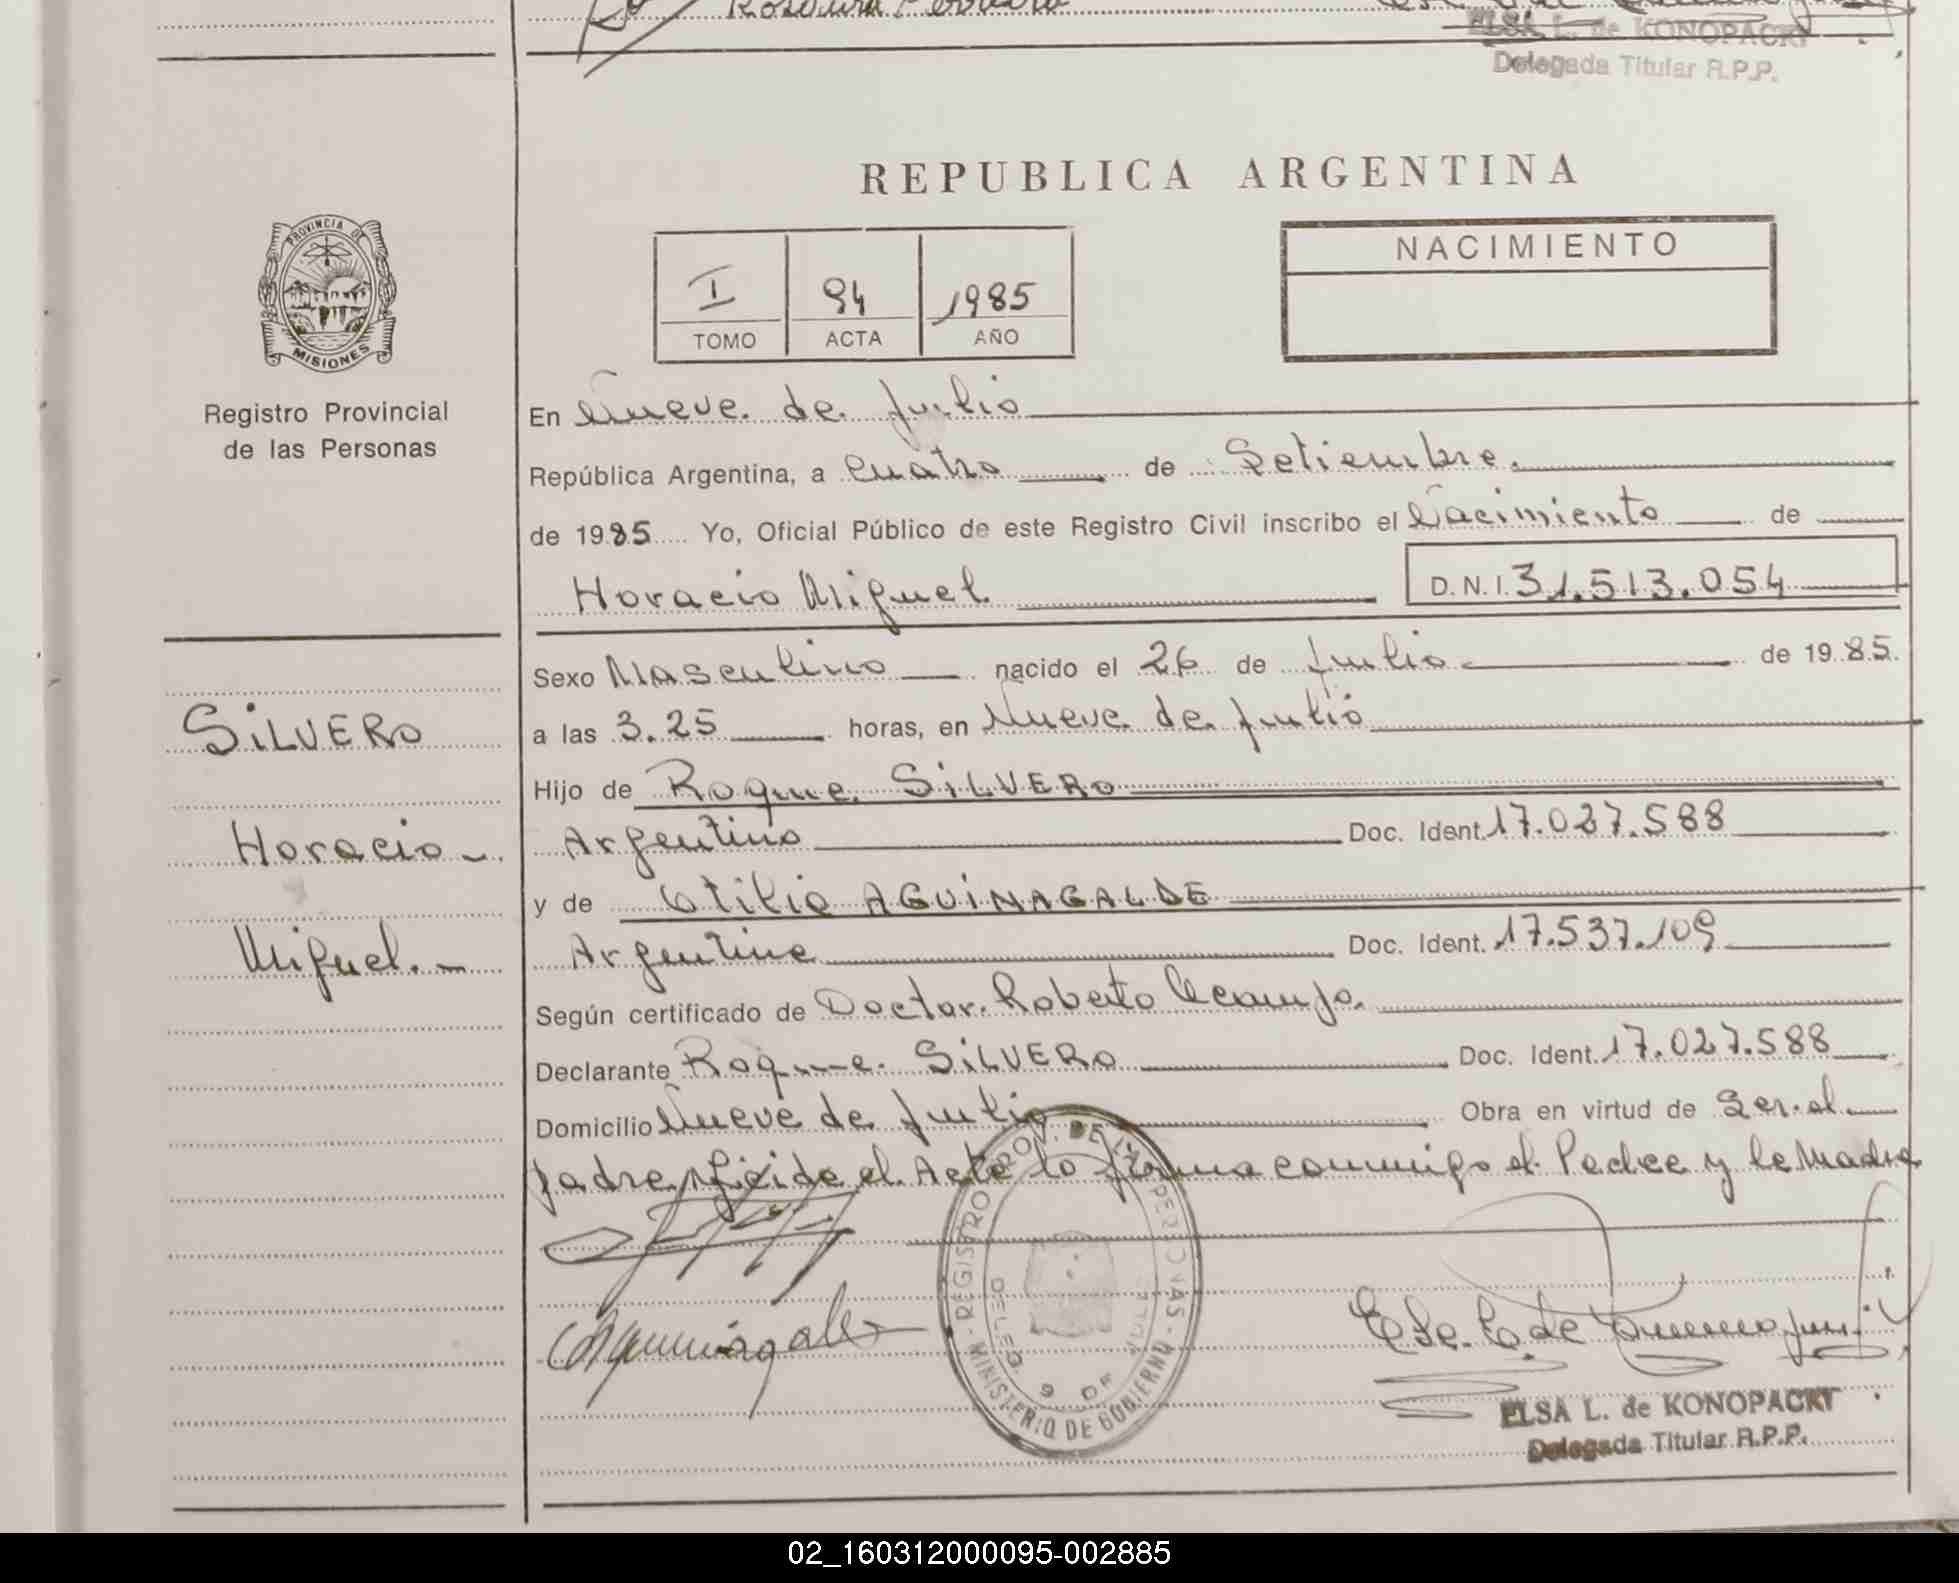 ELSA L. de KONOPACKI
Delegada Titular R.P.P.
REPUBLICA ARGENTINA
PROVINCIA DE
MISIONES
Registro Provincial
de las Personas
I 94 1985
TOMO ACTA AÑO
NACIMIENTO
En Nueve de Julio
República Argentina, a Cuatro de Setiembre.
de 1985 Yo, Oficial Público de este Registro Civil inscribo el Nacimiento de
Horacio Miguel D.N.I. 31.513.054
Sexo Masculino nacido el 26 de Julio de 1985.
a las 3.25 horas, en Nueve de Julio
Hijo de Roque SILVERO
Argentino Doc. Ident. 17.027.588
y de Otilia AGUINAGALDE
Argentina Doc. Ident. 17.537.109
Según certificado de Doctor. Roberto
Declarante Roque SILVERO Doc. Ident. 17.027.588
Domicilio Nueve de Julio Obra en virtud de Ser el
padre el Acta lo firma conmigo el Padre y la Madre
SILVERO
Horacio
Miguel.
REGISTRO PROV. DE LAS PERSONAS
MINISTERIO DE GOBIERNO
ELSA L. de KONOPACKI
Delegada Titular R.P.P.
02_160312000095-002885